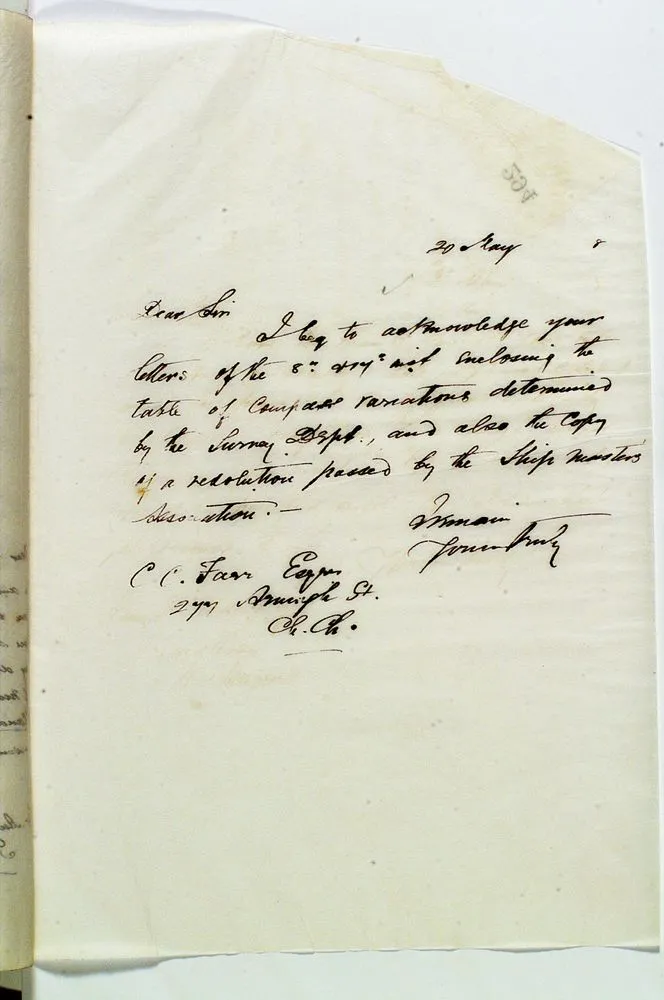 20 May 8
Dear Sir
I beg to acknowledge your
letters of the 8th & 17th inst enclosing the
table of Compass variations determined
by the Survey Dept., and also the Copy
of a resolution passed by the Ship masters
Association. —
I remain
Yours truly
C C. Farr Esqre
277 Armagh St.
Ch. Ch.